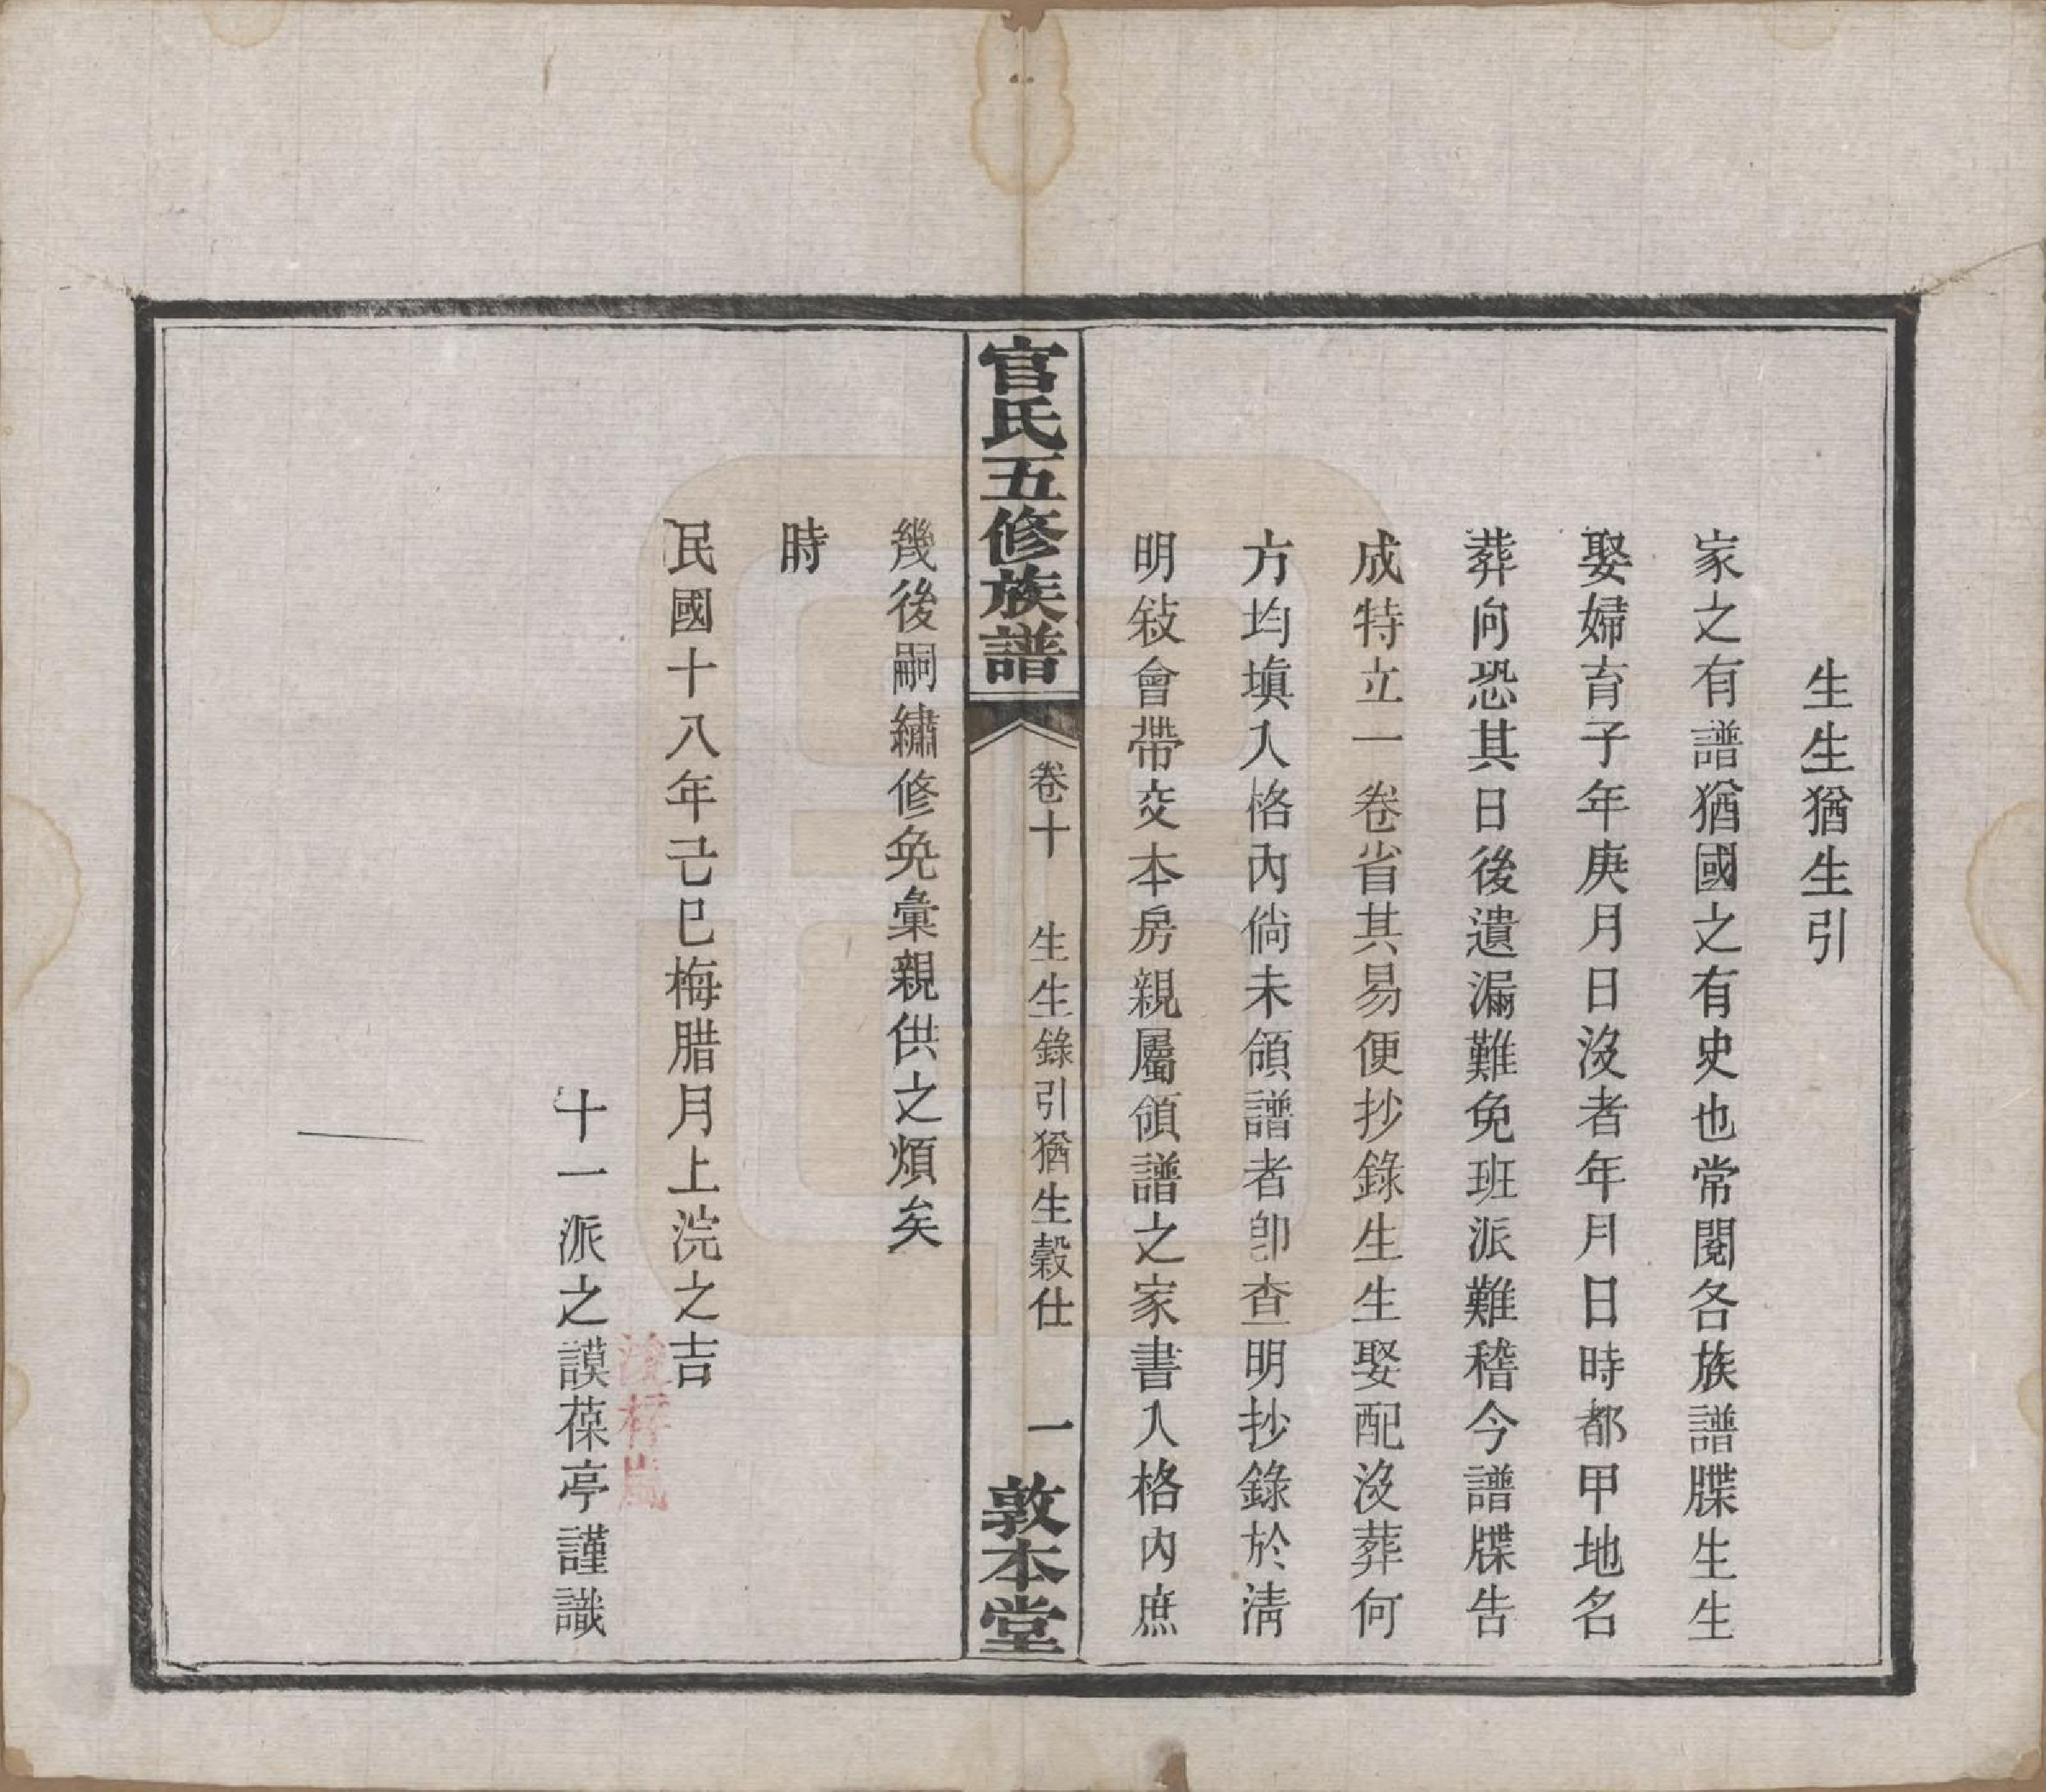 生生猶生引
家之有譜猶國之有史也常閱各族譜牒生生
娶婦育子年庚月日沒者年月日時都甲地名
葬向恐其日後遺漏難免班派難稽今譜牒告
成特立一卷省其易便抄錄生生娶配沒葬何
方均塡入格內倘未領譜者卽查明抄錄於淸
明敍會帶交本房親屬領譜之家書入格內庶
官氏五修族譜
卷十 生生錄引猶生穀仕 一
敦本堂
幾後嗣繡修免彙親供之煩矣
時
民國十八年己巳梅腊月上浣之吉
十一派之謨葆亭謹識